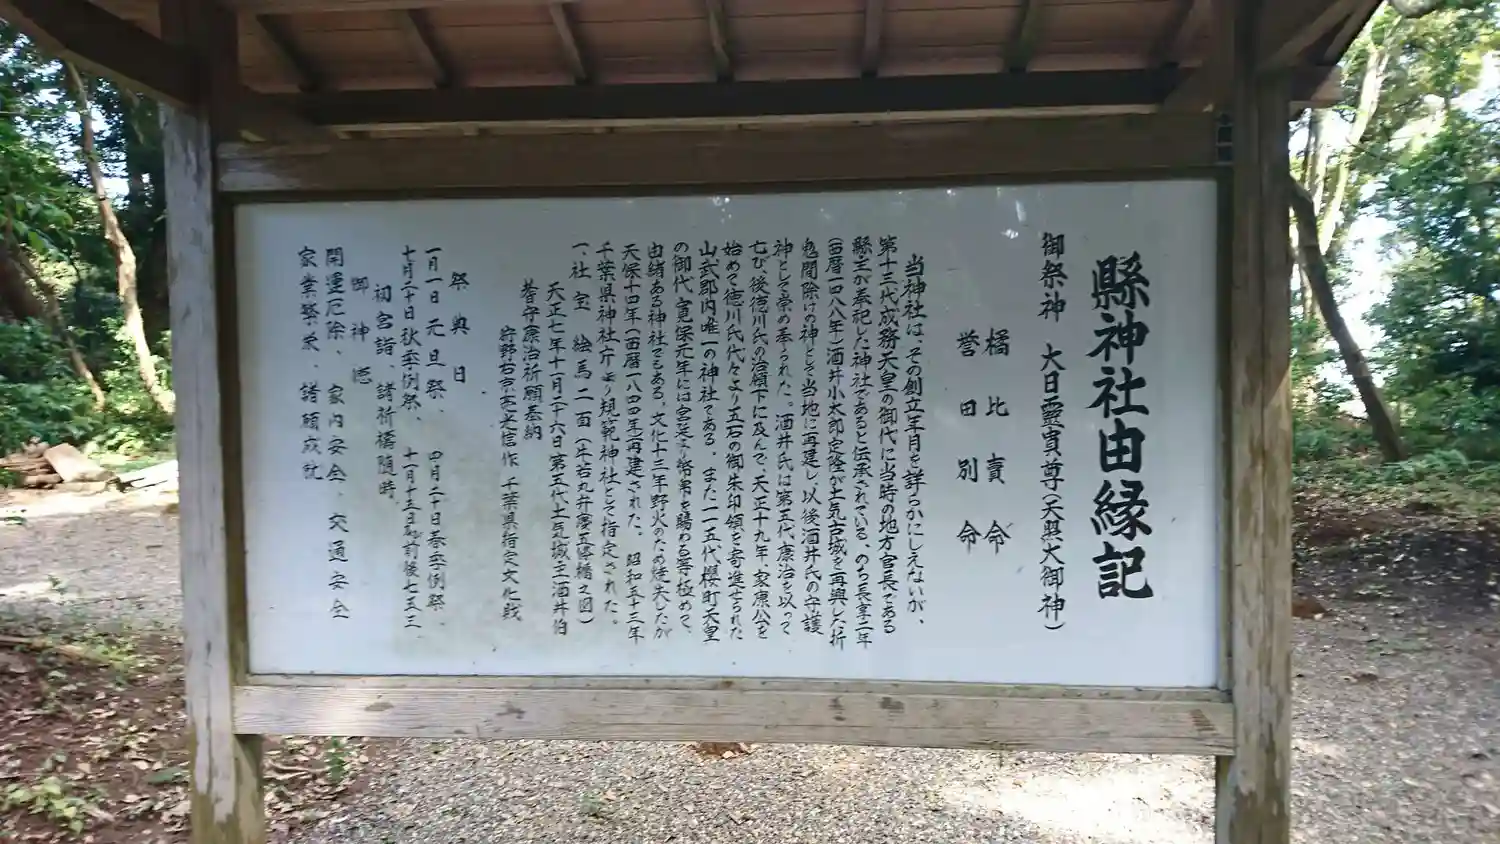 縣神社由縁記
御祭神 大日靈貴尊(天照大御神)
橘比賣命
誉田別命
当神社は、その創立年月を詳らかにしえないが、
第十三代成務天皇の御代に当時の地方官長である
縣主が奉祀した神社であると伝承されている。のち長享二年
(西暦一四八八年)酒井小太郎定隆が土気古城を再興した折
鬼間除けの神として当地に再建し、以後酒井氏の守護
神として崇め奉られた。酒井氏は第五代康治を以って
亡び、後徳川氏の治領下に及んで、天正十九年、家康公を
始めて徳川氏代々より五石の御朱印領を寄進せられた
山武郡内唯一の神社である。また一一五代櫻町天皇
の御代、寛保元年には宮廷より幣帛を賜わる等極めて、
由緒ある神社である。文化十三年野火のため焼失したが
天保十四年(西暦一八四四年)再建された。 昭和五十三年
千葉県神社庁より規範神社として指定された。
一、社宝 絵馬二面(牛若丸弁慶五條橋之図)
天正七年十一月二十六日第五代土気城主酒井伯
耆守康治祈願奉納
狩野右京亮光信作 千葉県指定文化財
祭典日
一月一日元旦祭、 四月二十日春季例祭、
十月二十日秋季例祭、 十一月十五日前後七五三
初宮詣、諸祈禱随時
御神徳
開運厄除、家内安全、交通安全
家業繁栄、諸願成就